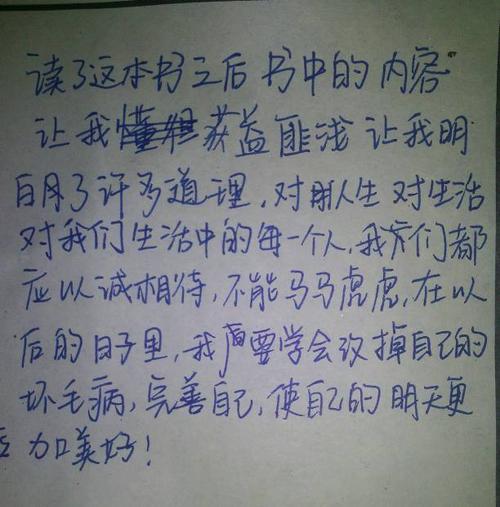 读了这本书之后 书中的内容
让我获益匪浅 让我明
白了许多道理,对人生 对生活
对我们生活中的每一个人,我们都
应以诚相待,不能马马虎虎,在以
后的日子里,我要学会改掉自己的
坏毛病,完善自己,使自己的明天更
加美好!